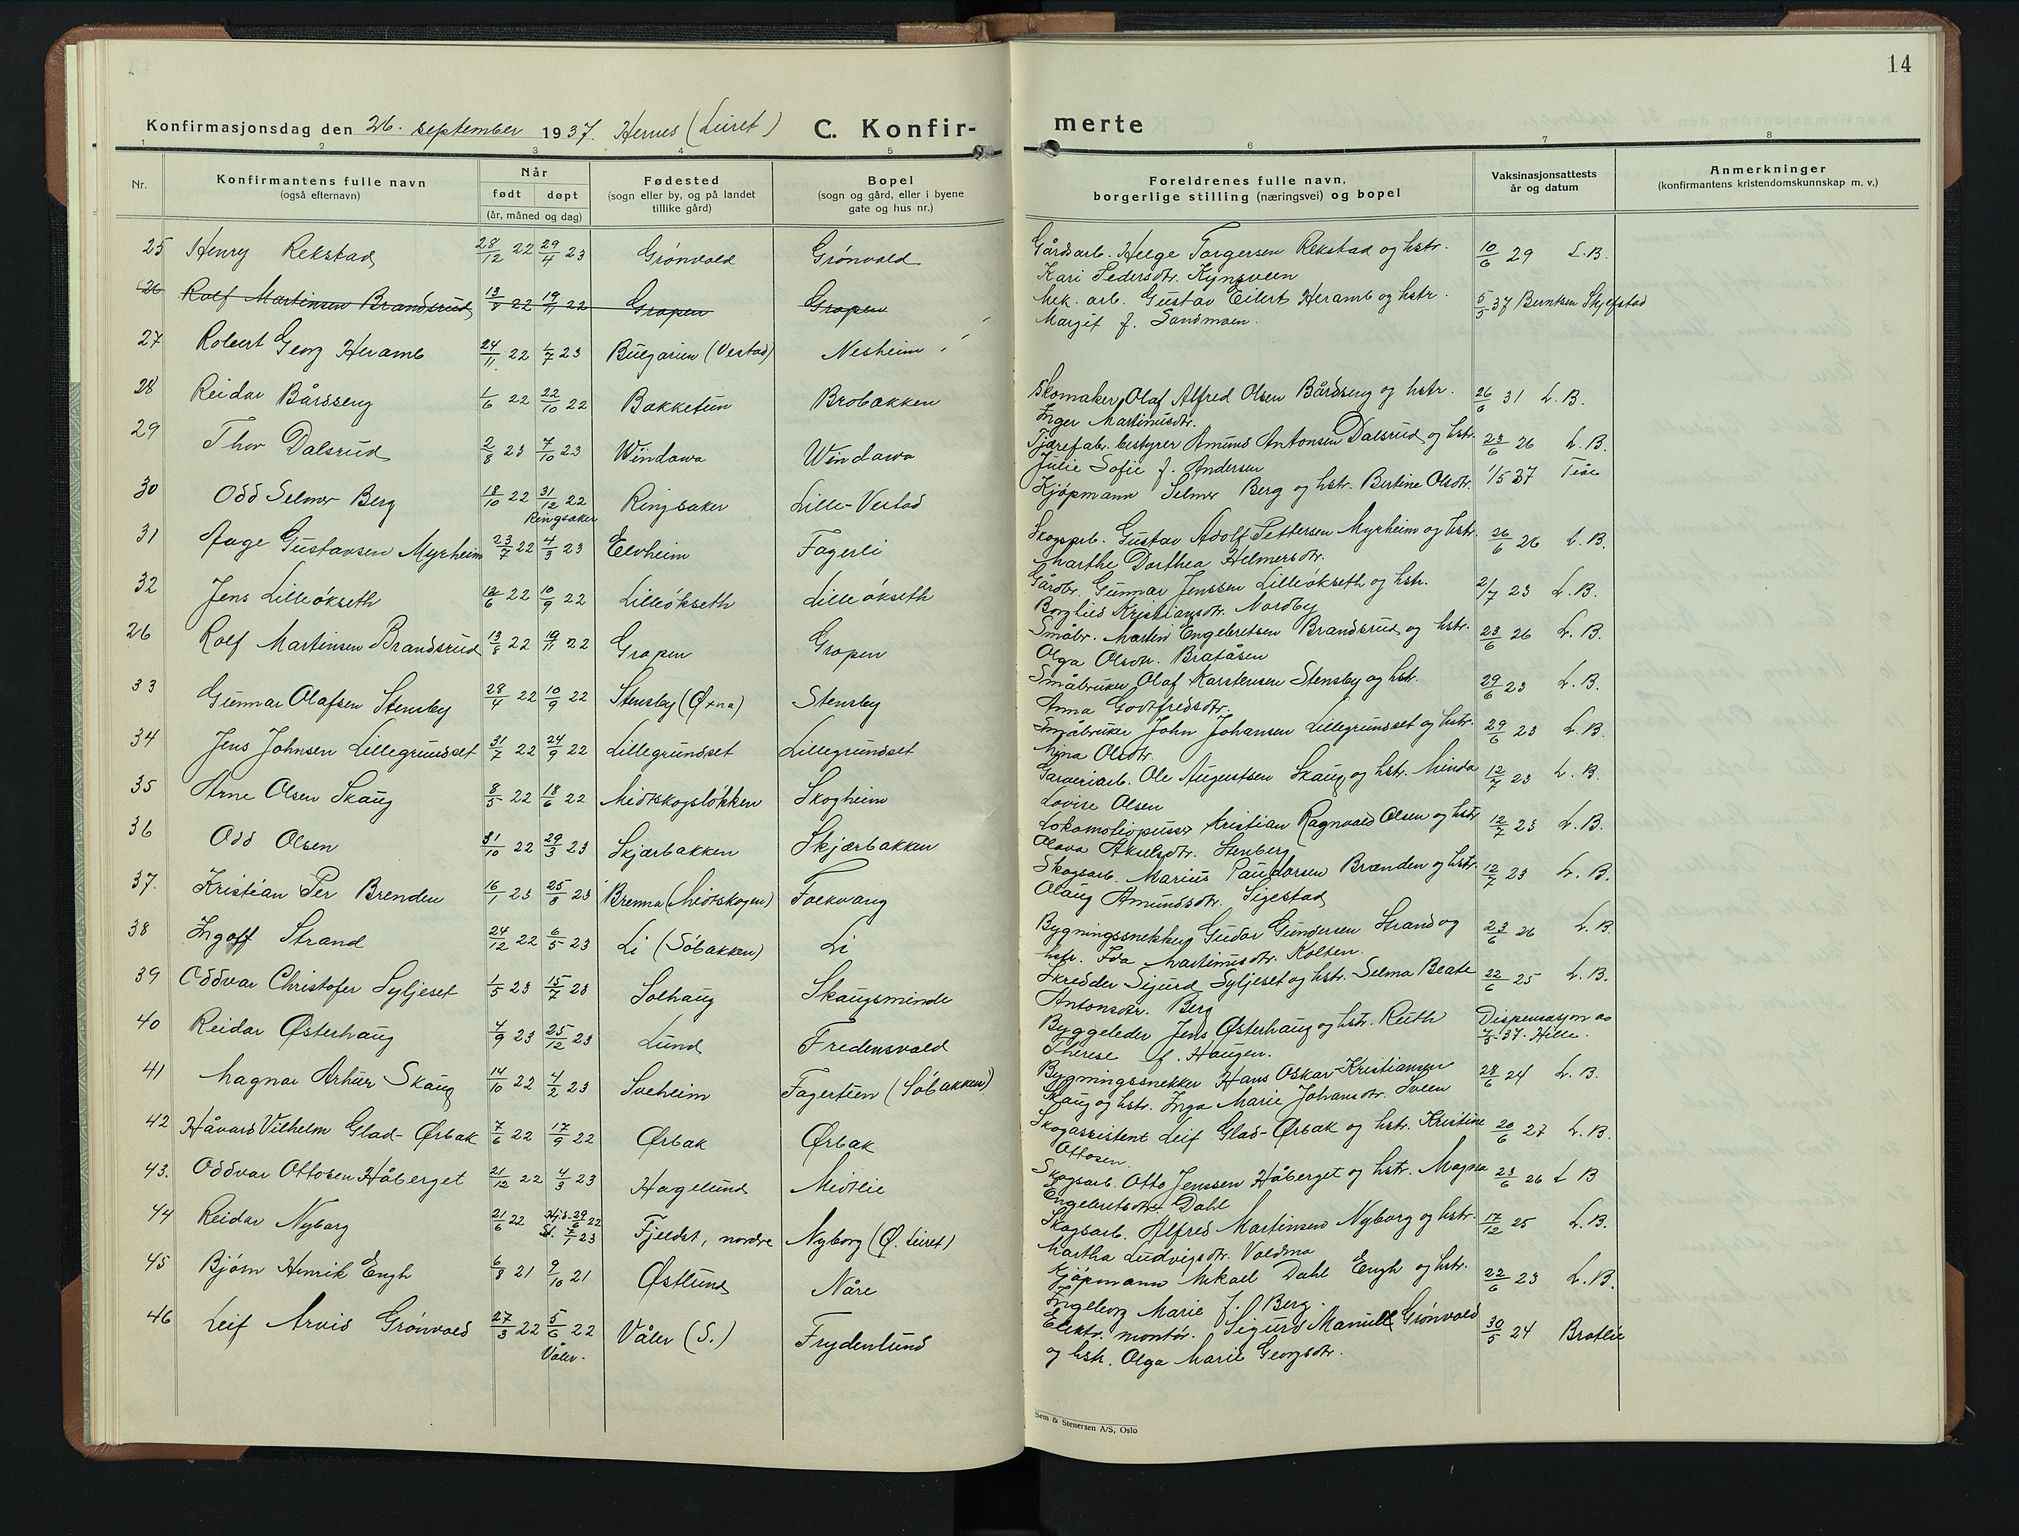 14
Konfirmasjonsdag den 26. september 1937. Hernes (Leiret) C. Konfir-
merte
1 2 3 4 5
6 7 8
Nr. Konfirmantens fulle navn (også efternavn) Når født døpt (år, måned og dag) Fødested (sogn eller by, og på landet tillike gård) Bopel (sogn og gård, eller i byene gate og hus nr.)
Foreldrenes fulle navn, borgerlige stilling (næringsvei) og bopel Vaksinasjonsattests år og datum Anmerkninger (konfirmantens kristendomskunnskap m. v.)
25 Henry Rekstad 28/12 22 29/4 23 Grønvold Grønvold
Gårdsarb. Helge Torgersen Rekstad og hstr. 10/6 29 L.B.
Kari Pedersdtr. Kynsveen
26 Rolf Martinsen Brandsrud 13/8 22 19/11 22 Gropen Gropen
27 Robert Georg Heramb 24/11 22 1/7 23 Buegarien (Vestad) Nesheim
Mek. arb. Gustav Eilert Heramb og hstr. 5/5 37 Berntsen Skjefstad
Margit f. Sandmoen.
28 Reidar Bårdseng 1/6 22 22/10 22 Bakketun Brobakken
Skomaker Olaf Alfred Olsen Bårdseng og hstr. 26/6 31 L.B.
Inger Martinusdtr.
29 Thor Dalsrud 2/8 23 7/10 23 Windawa Windawa
Tjærefabr. bestyrer Amund Antonsen Dalsrud og hstr. 23/6 26 L.B.
Julie Sofie f. Andersen
30 Odd Selmer Berg 18/10 22 31/12 22 Ringsaker Ringsaker Lille-Vestad
Kjøpmann Selmer Berg og hstr. Bertine Olsdtr. 1/5 37
31 Aage Gustavsen Myrheim 23/7 22 4/3 23 Elvheim Fagerli
Skogsarb. Gustav Adolf Pettersen Myrheim og hstr. 26/6 26 L.B.
Marthe Dorthea Helmersdtr.
32 Jens Lilleøkseth 13/6 22 10/9 22 Lilleøkseth Lilleøkseth
Gårdbr. Gunnar Jenssen Lilleøkseth og hstr. 2/7 23 L.B.
Borghild Kristiansdtr. Nordby
26 Rolf Martinsen Brandsrud 13/8 22 19/11 22 Gropen Gropen
Småbr. Martin Engebretsen Brandsrud og hstr. 23/6 26 L.B.
Olga Olsdtr. Bratåsen
33 Gunnar Olafsen Stensby 28/4 22 10/9 22 Stensby (Øxna) Stensby
Småbruker Olaf Karstensen Stensby og hstr. 29/6 23 L.B.
Anna Godtfredsdtr.
34 Jens Johnsen Lillegrundset 31/7 22 24/9 22 Lillegrundset Lillegrundset
Småbruker John Johansen Lillegrundset og hstr. 29/6 23 L.B.
Nina Olsdtr.
35 Arne Olsen Skaug 8/5 22 18/6 22 Midtskogsløkken Skogheim
Garveriarb. Ole Augustsen Skaug og hstr. Minda 12/7 23 L.B.
Lovise Olsen
36 Odd Olsen 31/10 22 29/3 23 Skjærbakken Skjærbakken
Lokomotivpusser Kristian Ragnvald Olsen og hstr. 12/7 23 L.B.
Olava Akselsdtr. Stenberg
37. Kristian Per Brenden 16/1 23 25/8 23 Brenna (Midtskogen) Folkvang
Skogsarb. Marius Paulsen Brænden og hstr. 12/7 23 L.B.
Olaug Amundsdtr. Sigestad
38 Ingolf Strand 24/12 22 6/5 23 Li (Søbakken) Li
Bygningssnekker Gudor Gundersen Strand og 23/6 26 L.B.
hstr. Ida Martinusdtr. Kolten.
39 Oddvar Christofer Syljeset 1/5 23 15/7 23 Solhaug Skaugsminde
Skredder Sigurd Syljeset og hstr. Selma Beate 22/6 25 L.B.
Antonsdtr. Berg
40 Reidar Østerhaug 4/9 23 25/12 23 Lund Fredensvold
Byggeleder Jens Østerhaug og hstr. Ruth Dispensasjon av
Therese f. Haugen. 7/5-37. Hille.
41 Magnar Arthur Skaug 14/10 22 4/2 23 Sveheim Fagertun (Søbakken)
Bygningssnekker Hans Oskar Kristiansen 28/6 24 L.B.
Skaug og hstr. Inga Marie Johansdtr. Sveen
42 Håvard Vilhelm Glad-Ørbak 7/6 22 17/9 22 Ørbak Ørbak
Skogassistent Leif Glad-Ørbak og hstr. Kristine 20/6 27 L.B.
Ottosen.
43. Oddvar Ottosen Håberget 21/12 22 4/3 23 Hagelund Midtlie
Skogsarb. Otto Jenssen Håberget og hstr. Magna 23/6 26 L B
Engebretsdtr. Dahl
44 Reidar Nyborg 21/6 22 Hjd. 29/6 22 St. 7/1 23 Fjeldset, nordre Nyborg (Ø. Leiret)
Skogsarb. Alfred Martinsen Nyborg og hstr. 17/12 25 L.B.
Martha Ludvigsdtr. Voldmo
45 Bjørn Henrik Engh 6/8 21 9/10 21 Østlund Nåre
Kjøpmann Mikael Dahl Engh og hstr. 22/6 23 L.B.
Ingeborg Marie f. Berg.
46 Leif Arvid Grønvold 27/3 22 5/6 22 Våler. Våler (S.) Frydenlund
Elektr. montør. Sigurd Manuel Grønvold 30/5 24 Bratlie
og hstr. Olga Marie Georgsdtr.
Sem & Stenersen A/S, Oslo